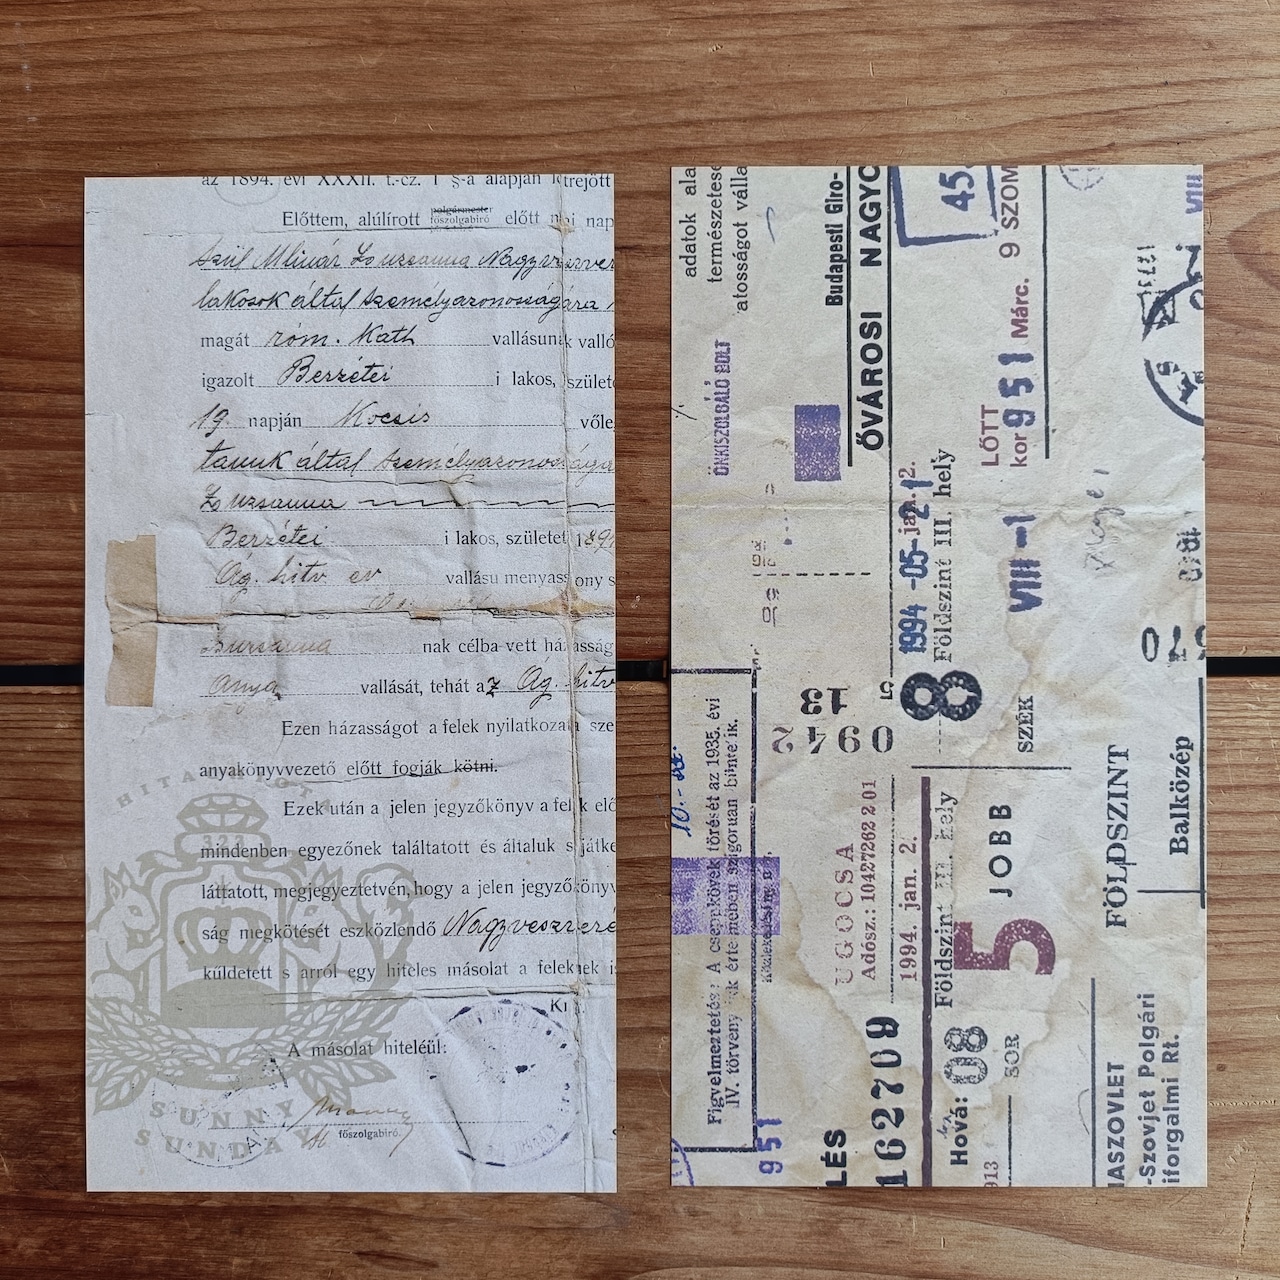 az 1894. évi XXXII. t.-cz. 1 §-a alapján létrejött
Előttem, alúlírott polgármester főszolgabíró előtt mai nap
szül Mlinár Zsuzsanna Nagyveszver
lakosok által személyazonosságára
magát róm. Kath vallásunak valló
igazolt Berzétei i lakos, születe
19 napján Kocsis vőle
tanuk által személyazonossága
Zsuzsanna
Berzétei i lakos, született 189
Ág. hitv ev vallásu menyasszony s
Zsuzsanna nak célba vett házasság
anya vallását, tehát az Ág. hitv
Ezen házasságot a felek nyilatkozata sze
anyakönyvvezető előtt fogják kötni.
Ezek után a jelen jegyzőkönyv a felek elő
mindenben egyezőnek találtatott és általuk s játke
láttatott, megjegyeztetvén, hogy a jelen jegyzőkönyv
ság megkötését eszközlendő Nagyveszveré
küldetett s arról egy hiteles másolat a feleknek is
A másolat hiteléül:
főszolgabíró.
SUNNY
SUNDAY
adatok ala
természetese
atosságot válla
ÖNKISZOLGÁLÓ BOLT
Budapesti Giro-
ŐVÁROSI NAGYC
45
LŐTT
kor 951 Márc. 9 SZOM
VIII
1994 -05- 2
jan. 2.
Földszint III. hely
VIII -1
13
0942
8
SZÉK
10.-
Figyelmeztetés: A cseppkövek törését az 1935. évi
IV. törvény értelmében szigoruan büntetik.
UGOCSA
Adósz.: 10427262 2 01
1994. jan. 2.
Földszint III. hely
JOBB
5
FÖLDSZINT
Balközép
951
LÉS
162709
Hová: 08
SOR
913
IASZOVLET
-Szovjet Polgári
iforgalmi Rt.